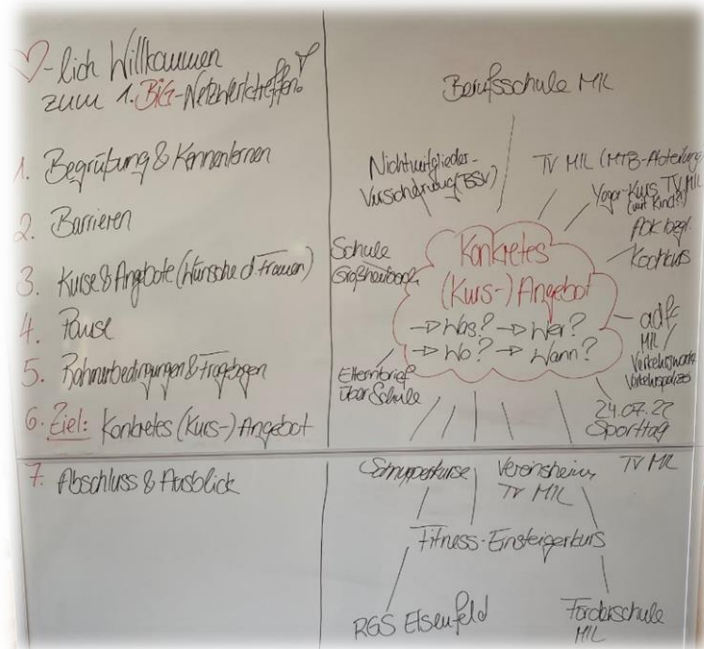 ♡-lich Willkommen
zum 1. BIG-Netzwerktreffen!
1. Begrüßung & Kennenlernen
2. Barrieren
3. Kurse & Angebote (Wünsche d. Frauen)
4. Pause
5. Rahmenbedingungen & Fragebogen
6. Ziel: Konkretes (Kurs-) Angebot
7. Abschluss & Ausblick
Berufsschule MIL
Nichtmitglieder-
Versicherung (BSV)
TV MIL (MTB-Abteilung)
Yoga-Kurs TV MIL
(mit Kind?)
AOK bzgl.
Kochkurs
Schule
Großheubach
Konkretes
(Kurs-) Angebot
→ Was? → Wer?
→ Wo? → Wann?
adfc
MIL
Verkehrswacht
Verkehrspolizei
Elternbrief
über Schule
24.07.22
Sporttag
TV MIL
Schnupperkurse
Vereinsheim
TV MIL
Fitness-Einsteigerkurs
RGS Elsenfeld
Förderschule
MIL